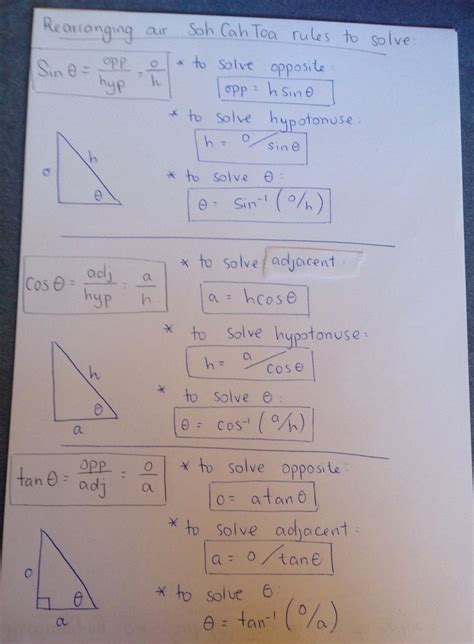 Rearranging air Soh Cah Toa rules to solve:
Sin θ = opp/hyp = o/h
* to solve opposite:
opp = h sin θ
* to solve hypotonuse:
h = o/sin θ
o h θ
* to solve θ:
θ = Sin⁻¹ (o/h)
cos θ = adj/hyp = a/h
* to solve adjacent:
a = h cos θ
* to solve hypotonuse:
h = a/cos θ
h θ
a
* to solve θ:
θ = cos⁻¹ (a/h)
tan θ = opp/adj = o/a
* to solve opposite:
o = a tan θ
* to solve adjacent:
a = o/tan θ
o θ
a
* to solve θ:
θ = tan⁻¹ (o/a)